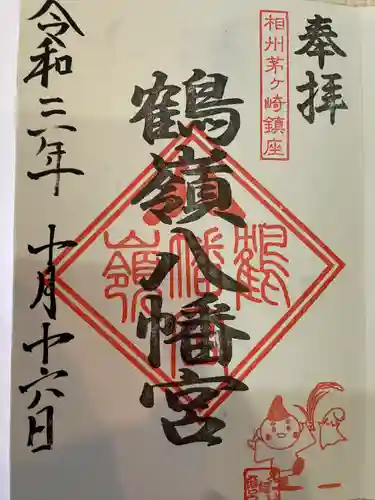 奉拝
相州茅ヶ崎鎮座
鶴嶺八幡宮
令和三年 十月十六日